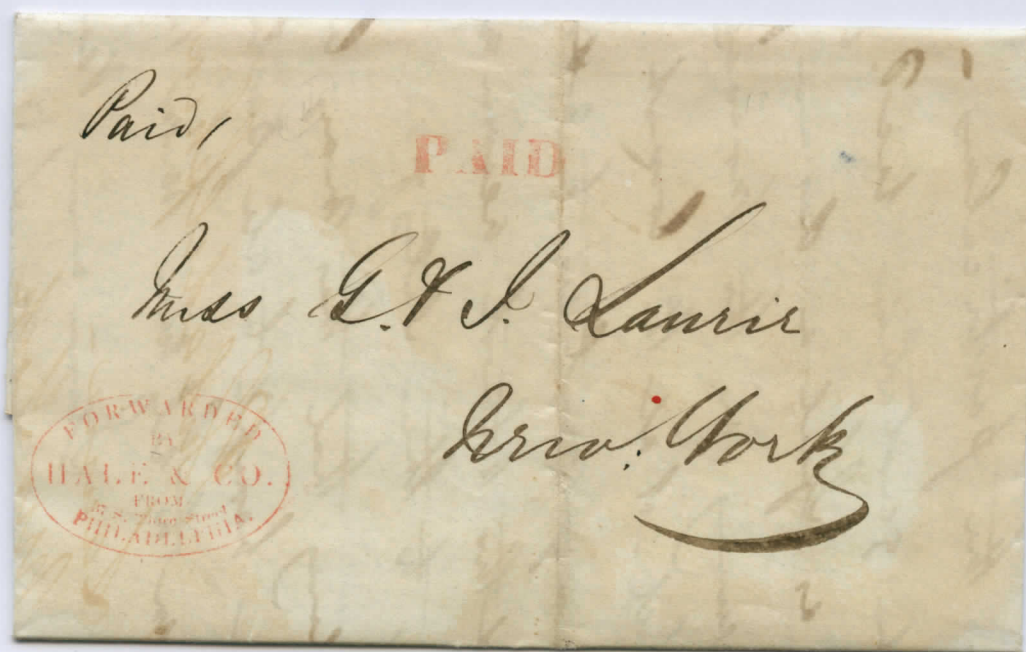 Paid,
PAID
Miss G. & J. Laurie
New. York
FORWARDED
BY
HALE & CO.
FROM
Third Street
PHILADELPHIA.